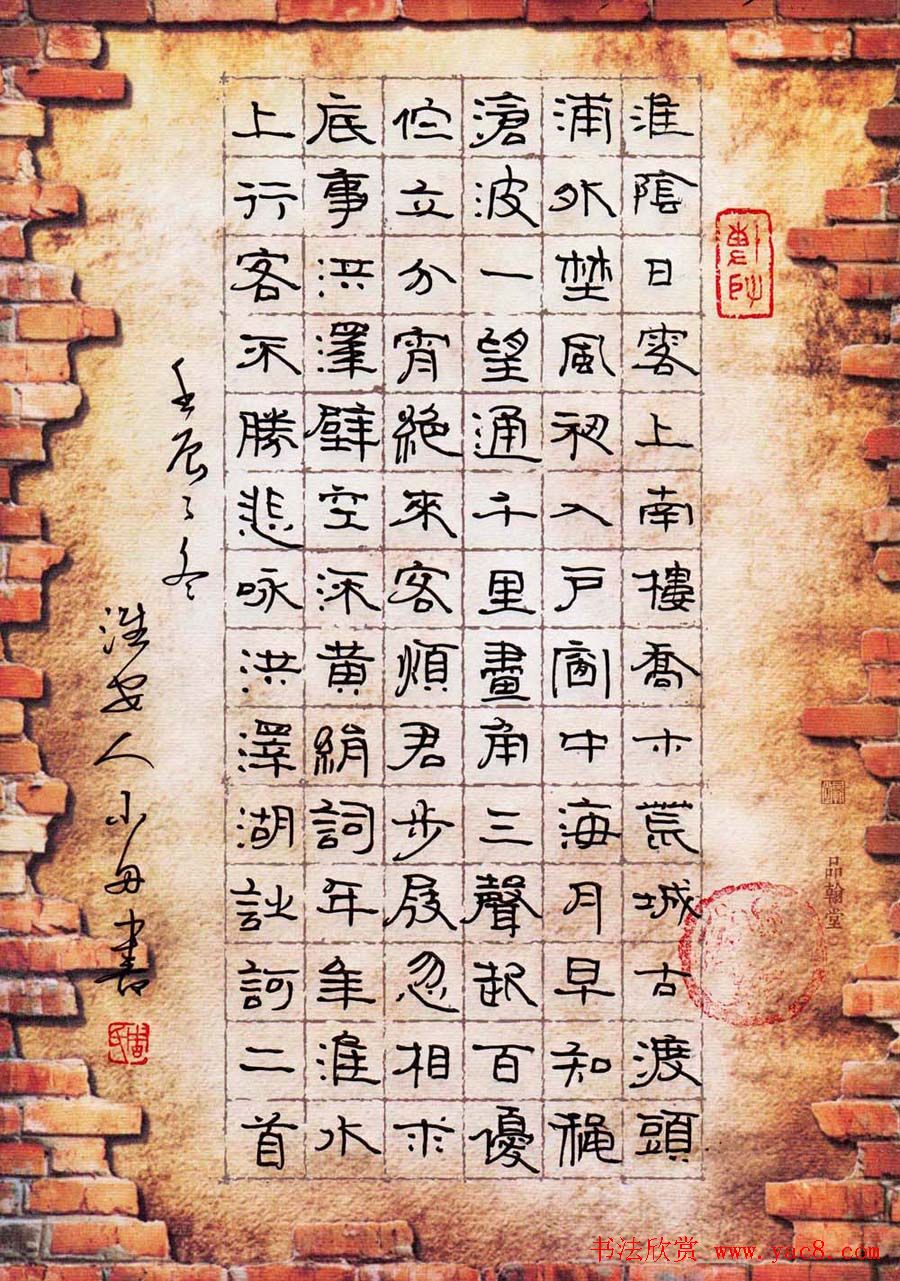 淮陰日落上南樓喬木荒城古渡頭
浦外埜風初入戶窗中海月早知穐
滄波一望通千里畫角三聲起百優
伫立分宵絕來客煩君步屐忽相求
底事洪澤壁空深黃絹詞年年淮水
上行客不勝悲詠洪澤湖詩詞二首
壬辰之冬
淮安人小舟書
品翰堂
书法欣赏 www.yac8.com